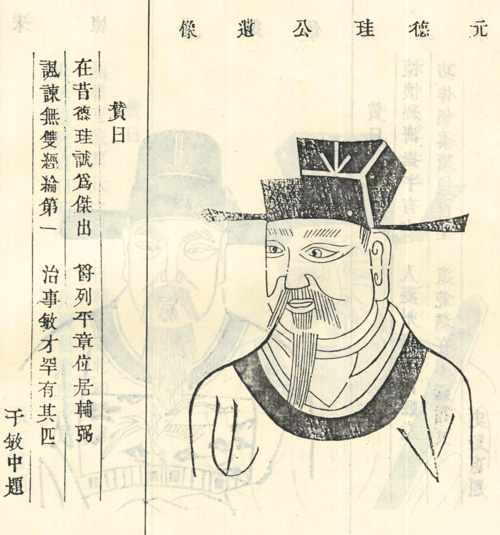 元德珪公遺像
贊曰
在昔德珪誠爲傑出 爵列平章位居輔弼
諷諫無雙經綸第一 治事敏才罕有其匹
于敏中題